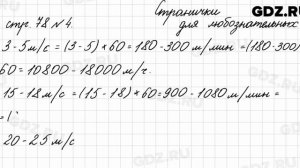 Странички
для любознательных
стр. 78 №4
3-5 м/с = (3-5)×60 = 180-300 м/мин = (180-300)
60 = 10800 - 18000 м/ч.
15-18 м/с = (15-18)×60 - 900 - 1080 м/мин =
20-25 м/с
GDZ.RU
GDZ.RU
GDZ.RU
GDZ.RU